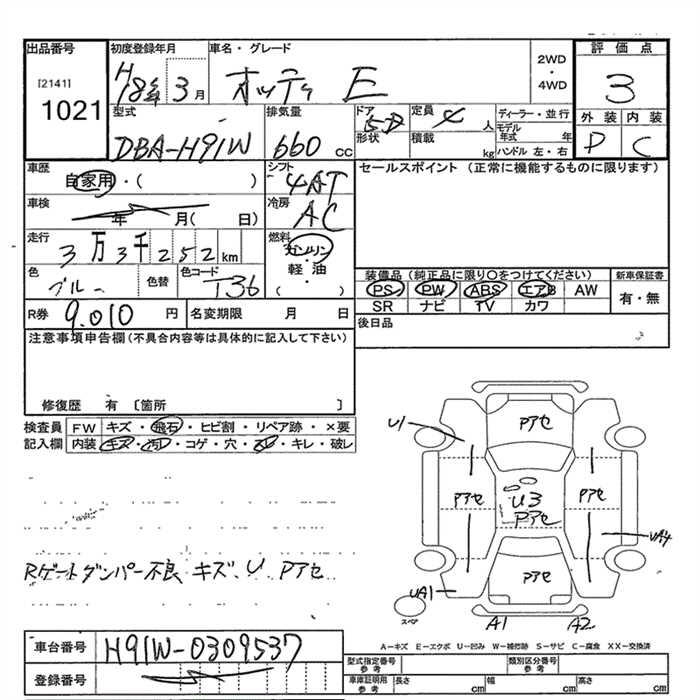 出品番号 初度登録年月 車名・グレード 2WD・4WD 評価点
[2141] 1021 H18年3月 オッティ E 3
型式 排気量 ドア形状 定員 人 ディーラー・並行 外装 内装
DBA-H91W 660cc 5D 4 積載 kg モデル年式 年 ハンドル 左・右 D C
車歴 自家用・( ) シフト 4AT セールスポイント (正常に機能するものに限ります)
車検 年 月( 日) 冷房 AC
走行 3万3千252km 燃料 ガソリン・軽油 ( )
色 ブルー 色替 色コード T36 装備品(純正品に限り○をつけてください) 新車保証書
PS PW ABS エアB AW 有・無
SR ナビ TV カワ
R券 9.010円 名変期限 月 日 後日品
注意事項申告欄(不具合内容等は具体的に記入して下さい)
修復歴 有 [箇所 ]
検査員記入欄 FW キズ・飛石・ヒビ割・リペア跡・×要
内装 キズ・汚レ・コゲ・穴・スレ・キレ・破レ
Rゲートダンパー不良 キズ、U Pアセ
U1
Pアセ
Pアセ U3 Pアセ Pアセ
UA4
Pアセ
UA1
スペア A1 A2
A-キズ E-エクボ U-凹み W-補修跡 S-サビ C-腐食 XX-交換済
車台番号 H91W-0309537
登録番号
型式指定番号 参考 類別区分番号 参考
車庫証明用 参考 長さ cm 幅 cm 高さ cm